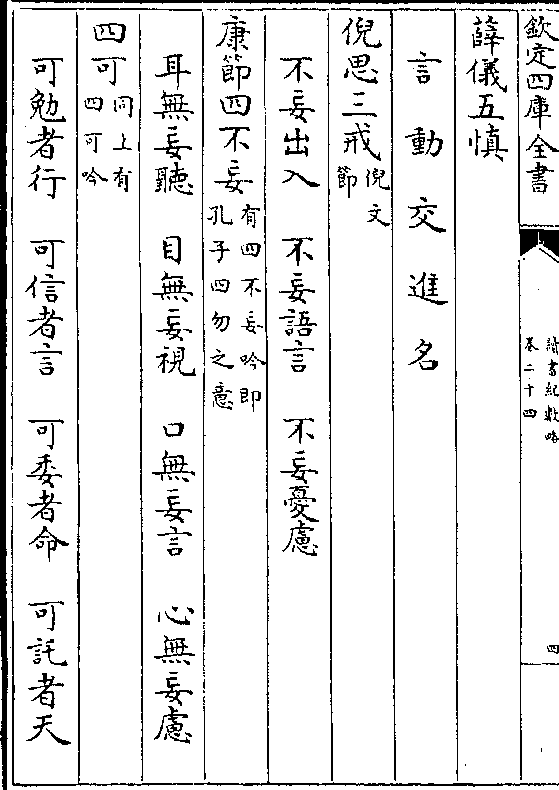 欽定四庫全書
讀書紀數略
卷二十四
四
薛儀五慎
言動交進名
倪思三戒倪文
節
不妄出入　不妄語言　不妄憂慮
康節四不妄有四不妄吟即
孔子四勿之意
耳無妄聽　目無妄視　口無妄言　心無妄慮
四可同上有
四可吟
可勉者行　可信者言　可委者命　可託者天